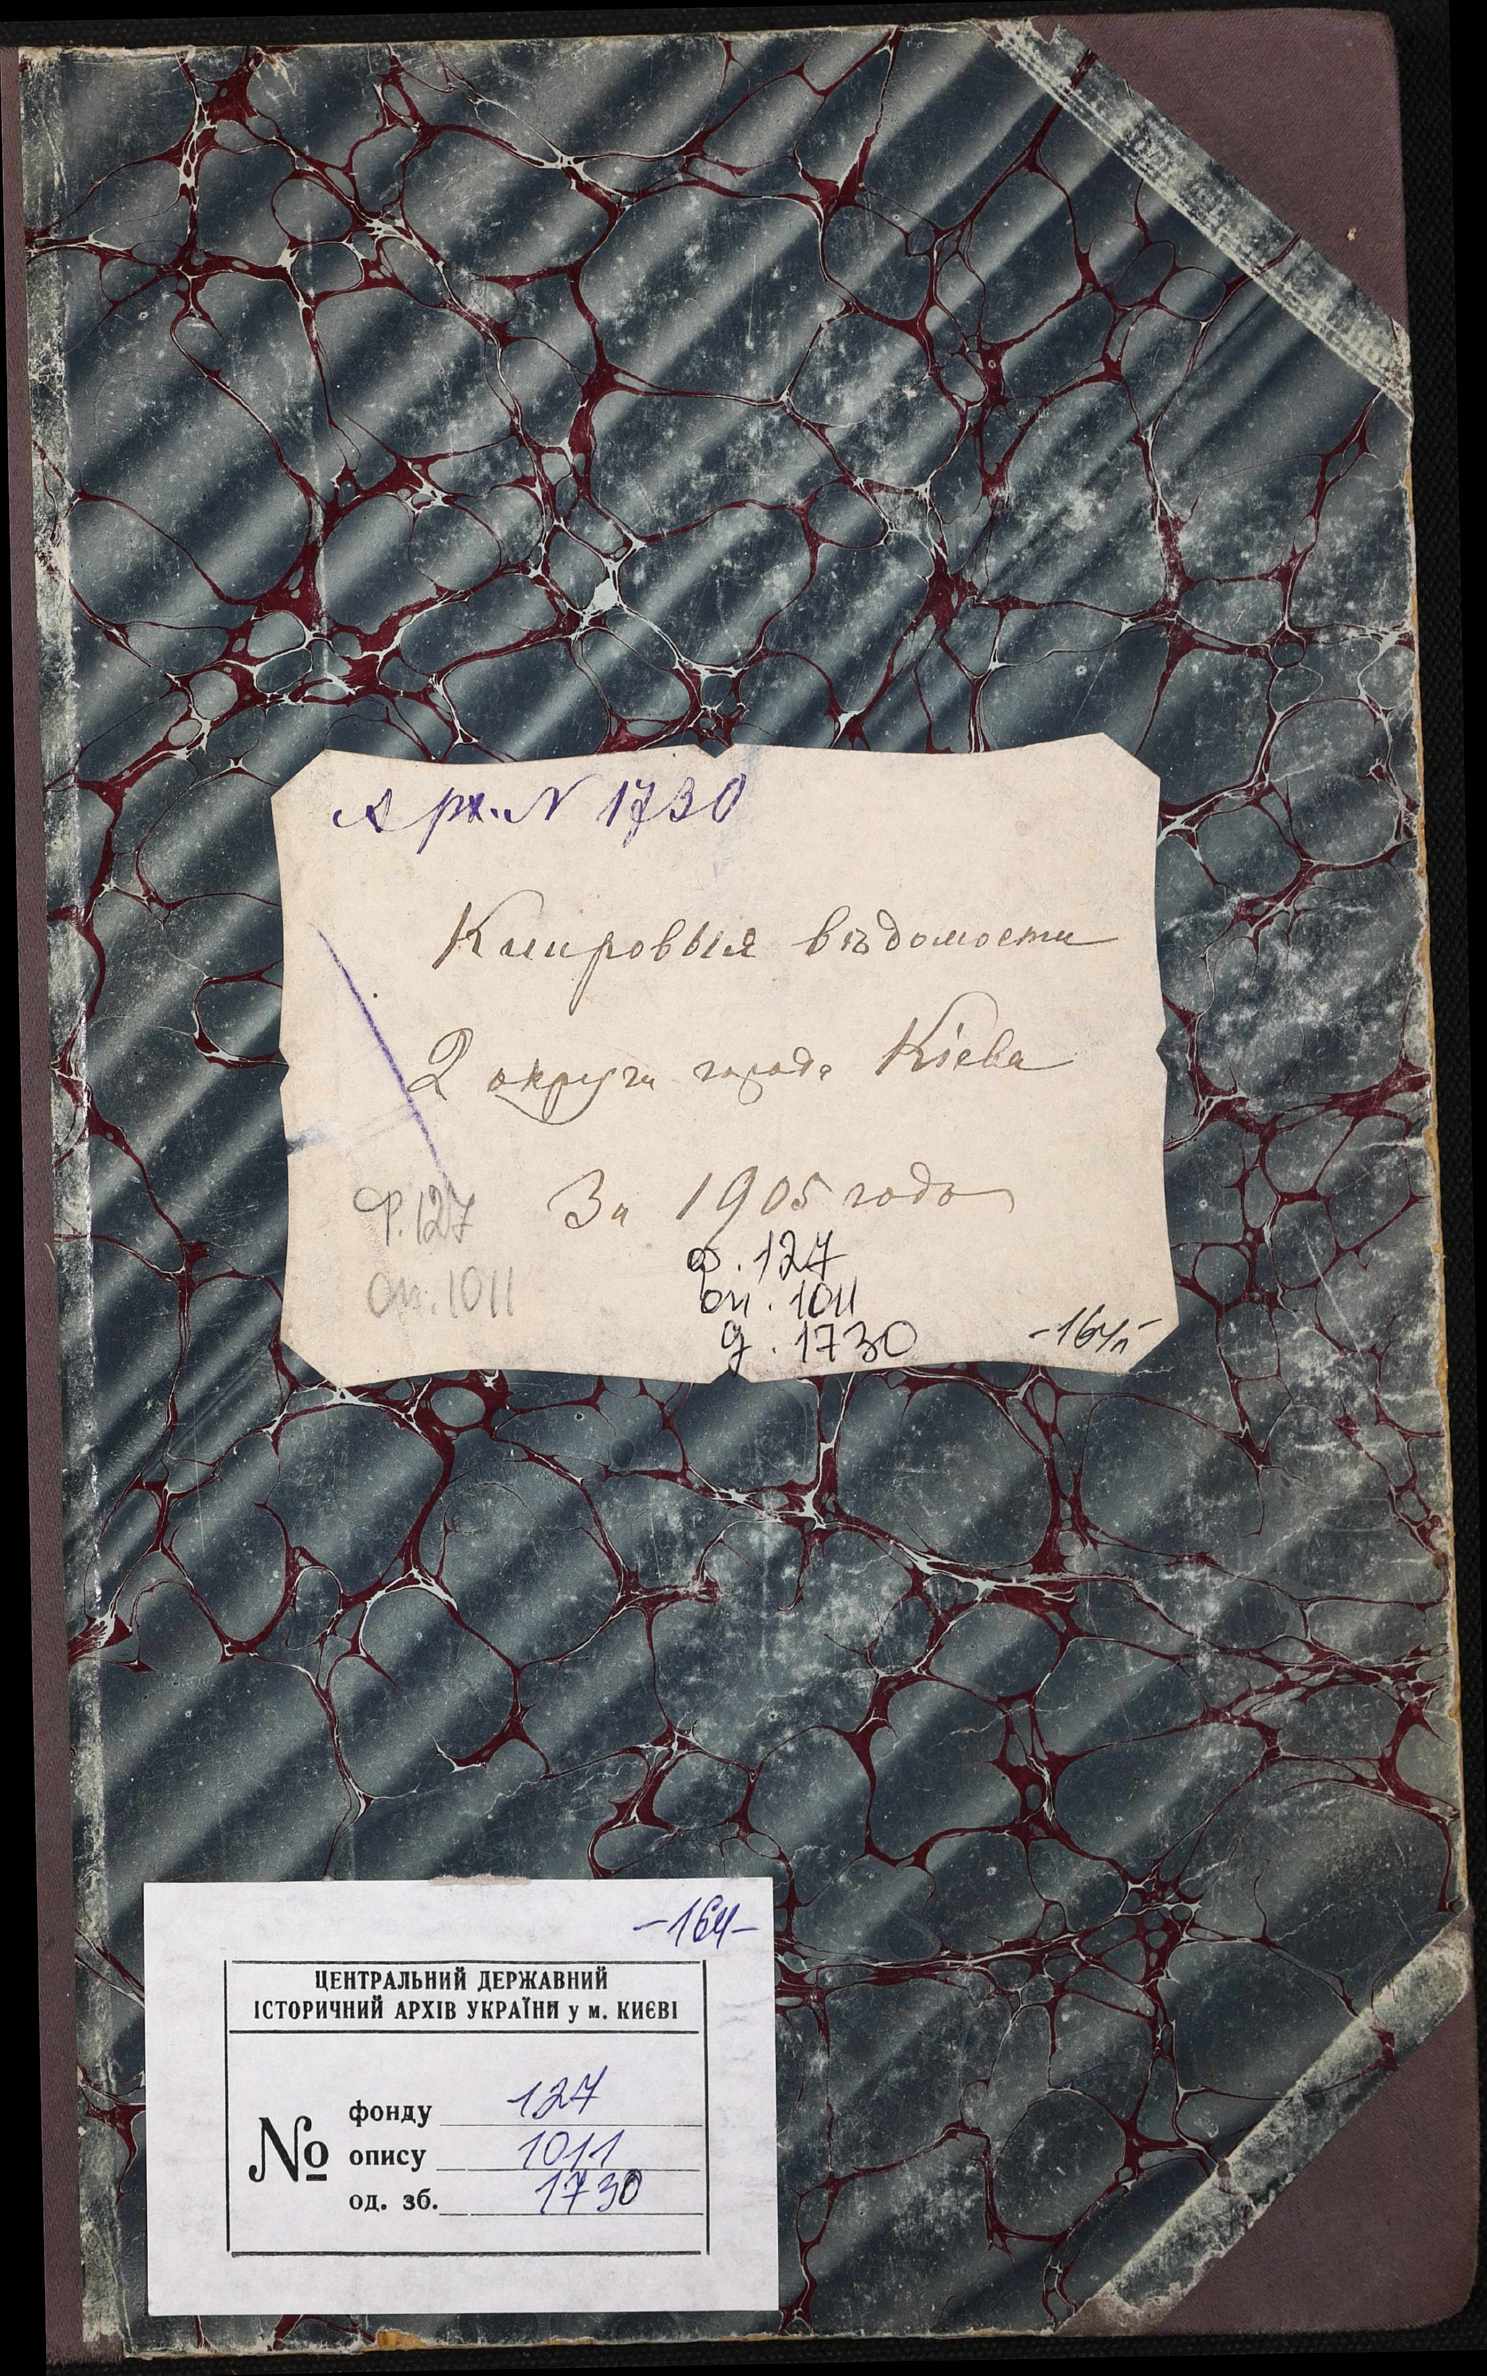 Арх. N 1730
Клировыя вѣдомости
2 округа города Кіева
За 1905 годъ
Ф. 127
оп. 1011
ф. 127
оп. 1011
д. 1730
-164л-
-164-
ЦЕНТРАЛЬНИЙ ДЕРЖАВНИЙ
ІСТОРИЧНИЙ АРХІВ УКРАЇНИ у м. КИЄВІ
№
фонду 127
опису 1011
од. зб. 1730